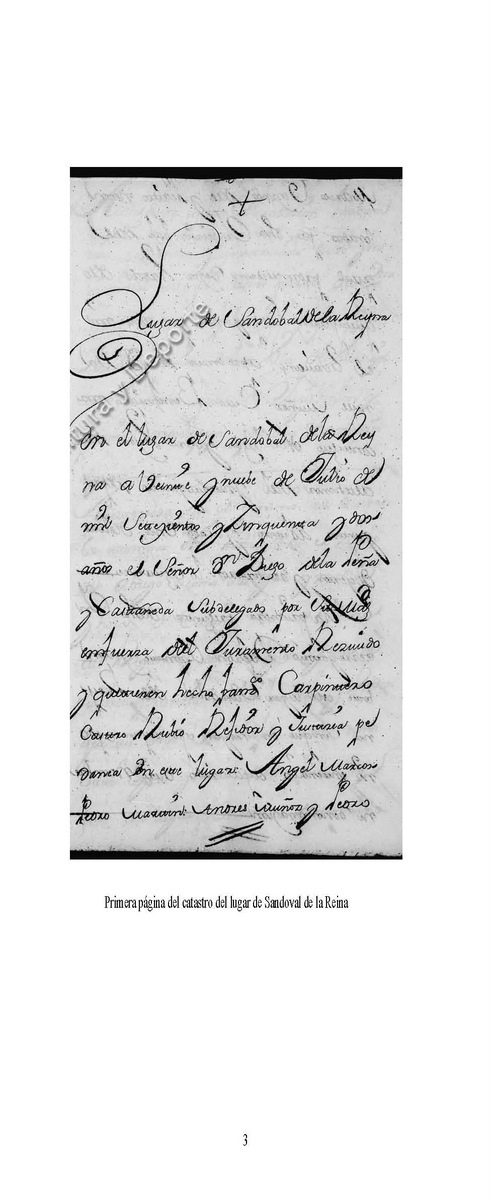 Lugar de Sandobal de la Reyna
en el lugar de Sandobal de la Rey
na a Veinte y nuebe de Julio de
mil Setecientos y Zinquenta y dos
años el Señor Dn Diego de la Peña
y Castañeda Subdelegado por Su Mag
en fuerza del Juramento Rezivido
y que tienen hecho Carpintero
Castro Rubio Rexidor y Justicia pe
danea en este lugar Angel Marcos
Pedro Martin Andres Muñoz y Pedro
tura y Deporte
Primera página del catastro del lugar de Sandoval de la Reina
3